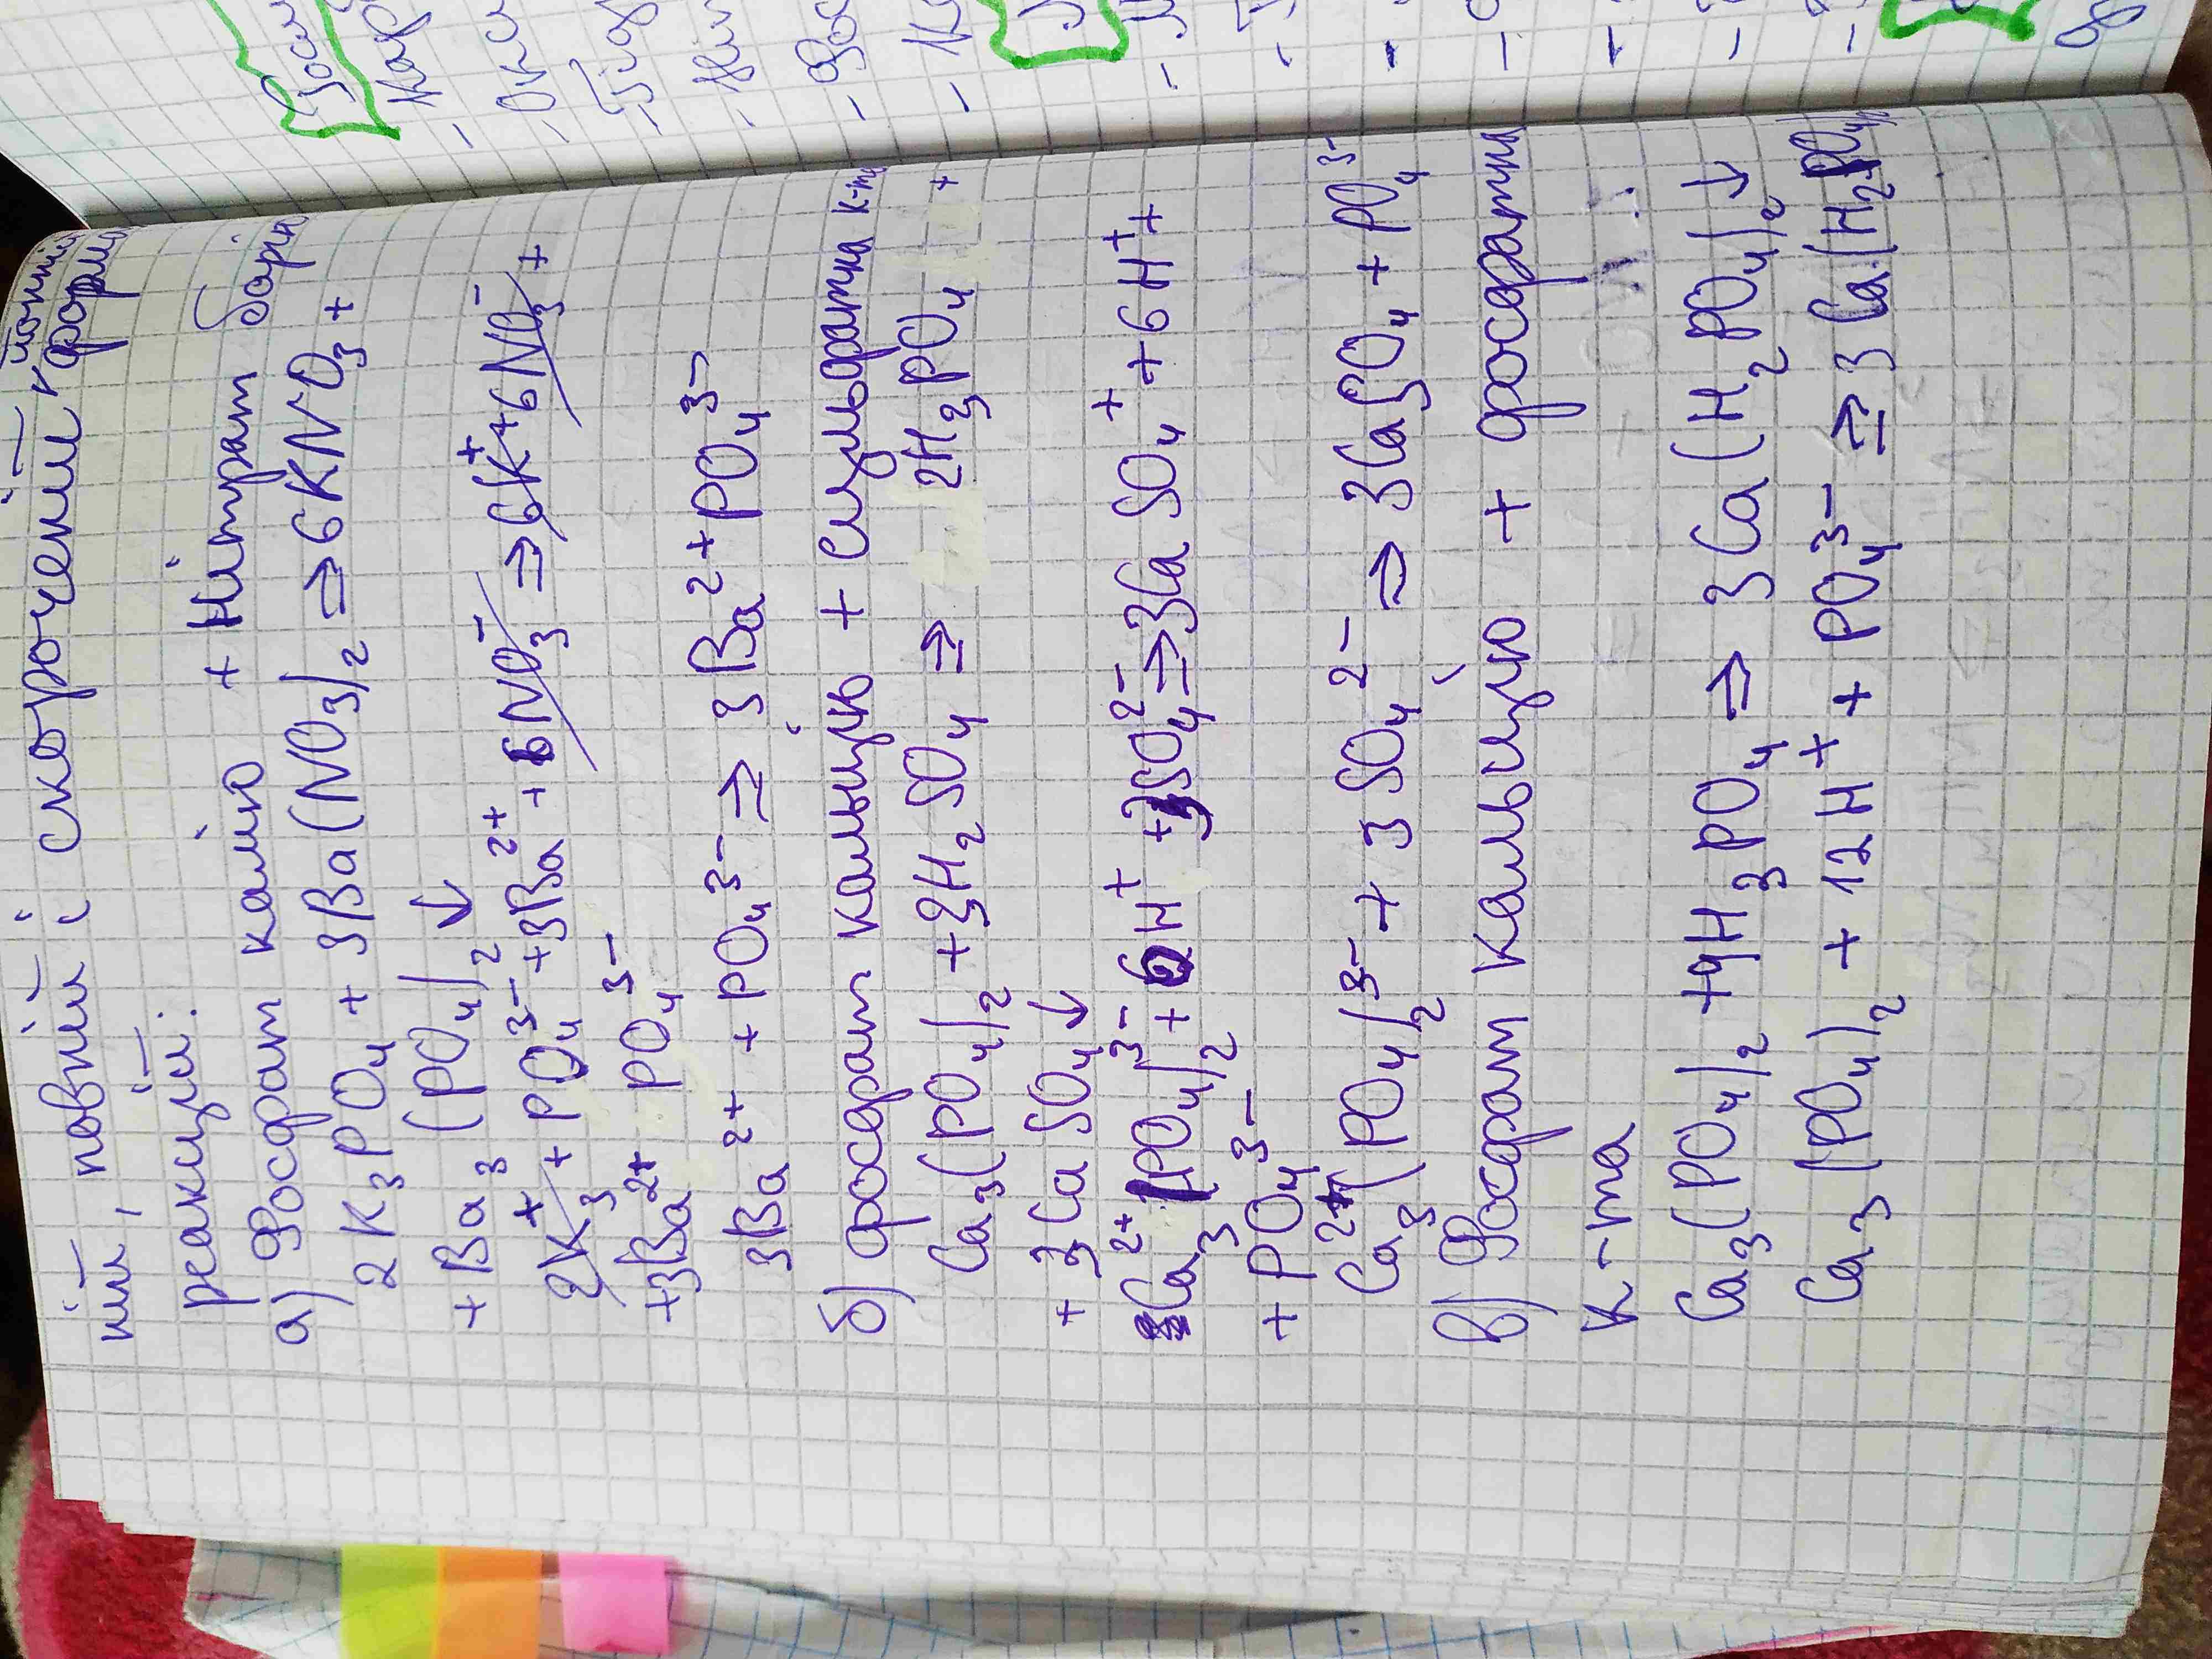 ній, повній і скороченій йонній формі
реакцій:
а) Фосфат калію + Нітрат барію
2K₃PO₄ + 3Ba(NO₃)₂ ⇒ 6KNO₃ +
+ Ba₃(PO₄)₂↓
2K₃⁺ + PO₄³⁻ + 3Ba²⁺ + 6NO₃⁻ ⇒ 6K⁺ + 6NO₃⁻ +
+3Ba²⁺ PO₄³⁻
3Ba²⁺ + PO₄³⁻ ⇒ 3Ba²⁺ PO₄³⁻
б) фосфат кальцію + сульфатна к-та
Ca₃(PO₄)₂ + 3H₂SO₄ ⇒ 2H₃PO₄ +
+ 3CaSO₄↓
Ca₃²⁺(PO₄)₂³⁻ + 6H⁺ + 3SO₄²⁻ ⇒ 3CaSO₄⁺ + 6H⁺ +
+ PO₄³⁻
Ca₃²⁺(PO₄)₂³⁻ + 3SO₄²⁻ ⇒ 3CaSO₄ + PO₄³⁻
в) Фосфат кальцію + фосфатна
к-та
Ca₃(PO₄)₂ + 4H₃PO₄ ⇒ 3Ca(H₂PO₄)₂↓
Ca₃(PO₄)₂ + 12H⁺ + PO₄³⁻ ⇒ 3Ca(H₂PO₄)₂